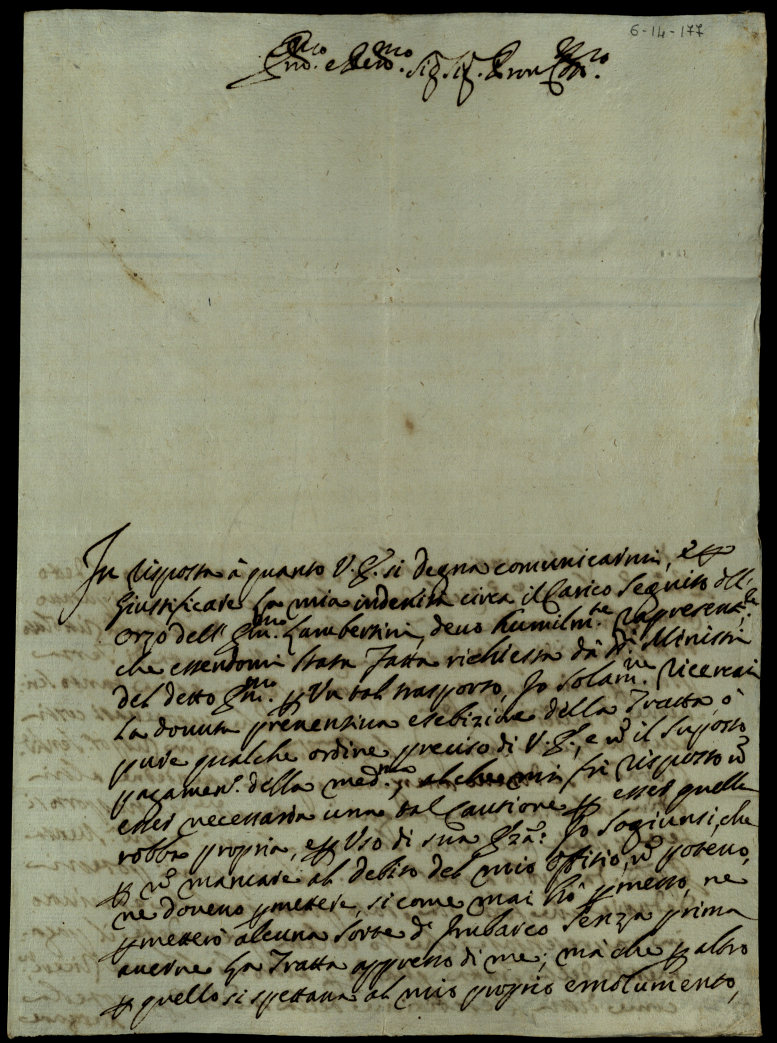 6-14-177
Em.mo e Rev.mo Sig. Sig. Pron Col.mo
In risposta à quanto V. E. si degna comunicarmi, è per
giustificare la mia indenità circa il Carico seguito dell'
orzo dell' Em.mo Lambertini, devo humilm.te rapresent.le
che essendomi stata fatta richiesta da SS.ri Ministri
del detto Em.mo per Un tal trasporto, Io solam.te ricercai
la dovuta preventiva esebizione della Tratta ò
pure qualche ordine preciso di V. E., e n͠ il suposto
pagamen.to della med.ma, mi fù risposto n͠
esser necessaria una tal Cautione per esser quella
robba propria, e per Uso di sua Em.za: Io sogiunsi, che
per n͠ mancare al debito del mio offitio, n͠ potevo,
ne dovevo permettere, si come mai hò permesso, ne
permetterò alcuna sorte d' Imbarco senza prima
averne la Tratta appresso di me; mà che per altro
per quello si spettava al mio proprio emolumento,